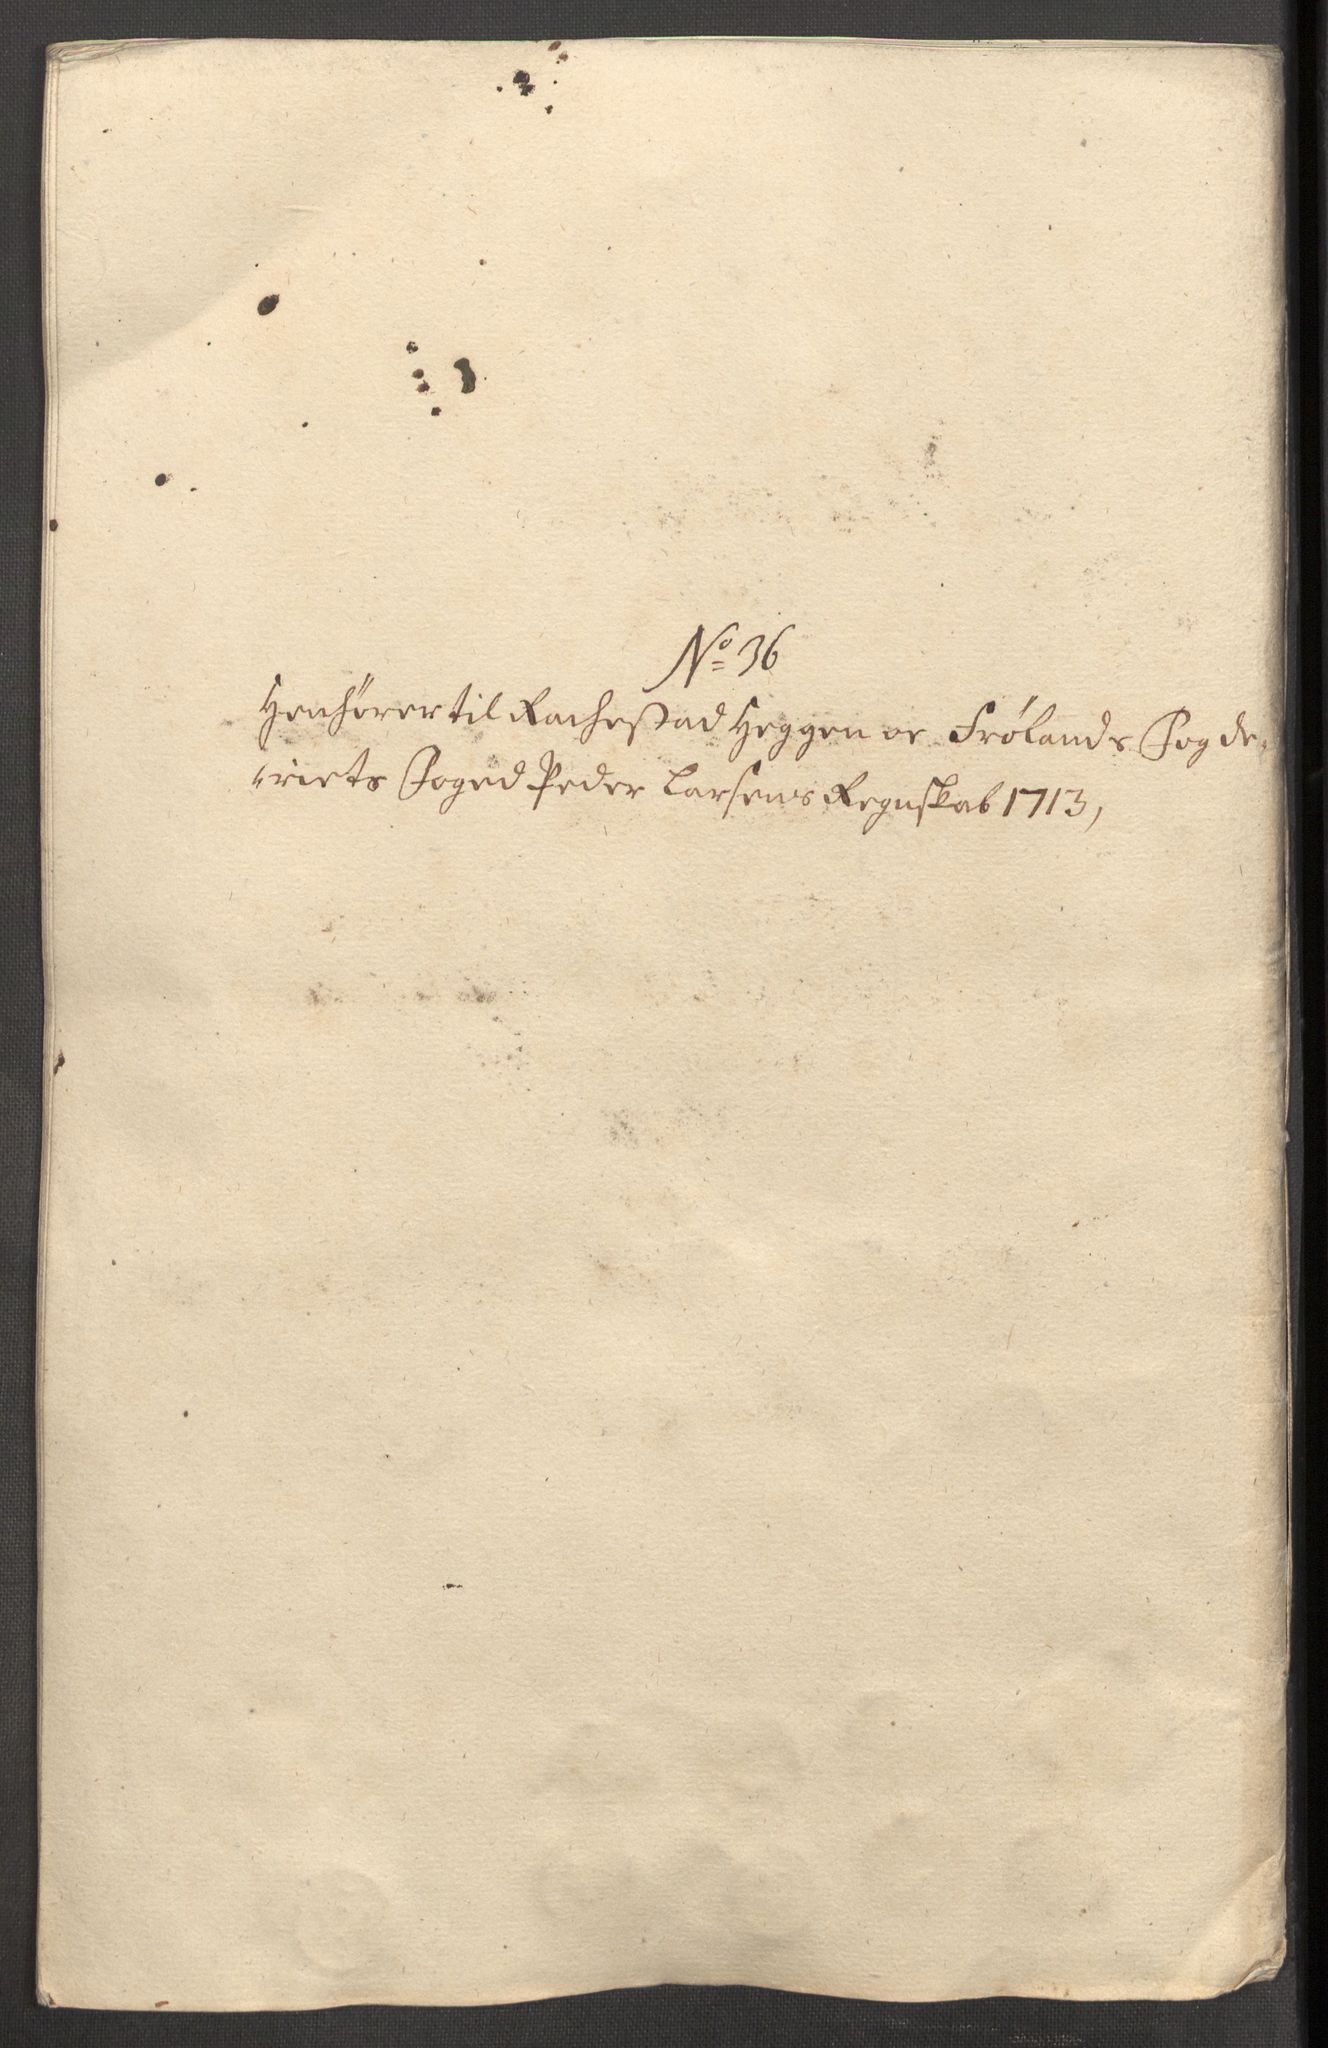 No 36
Henhører til Rachestad Heggen oc Frølands Fogde-
riets Foged Peder Larsens Regnskab 1713,